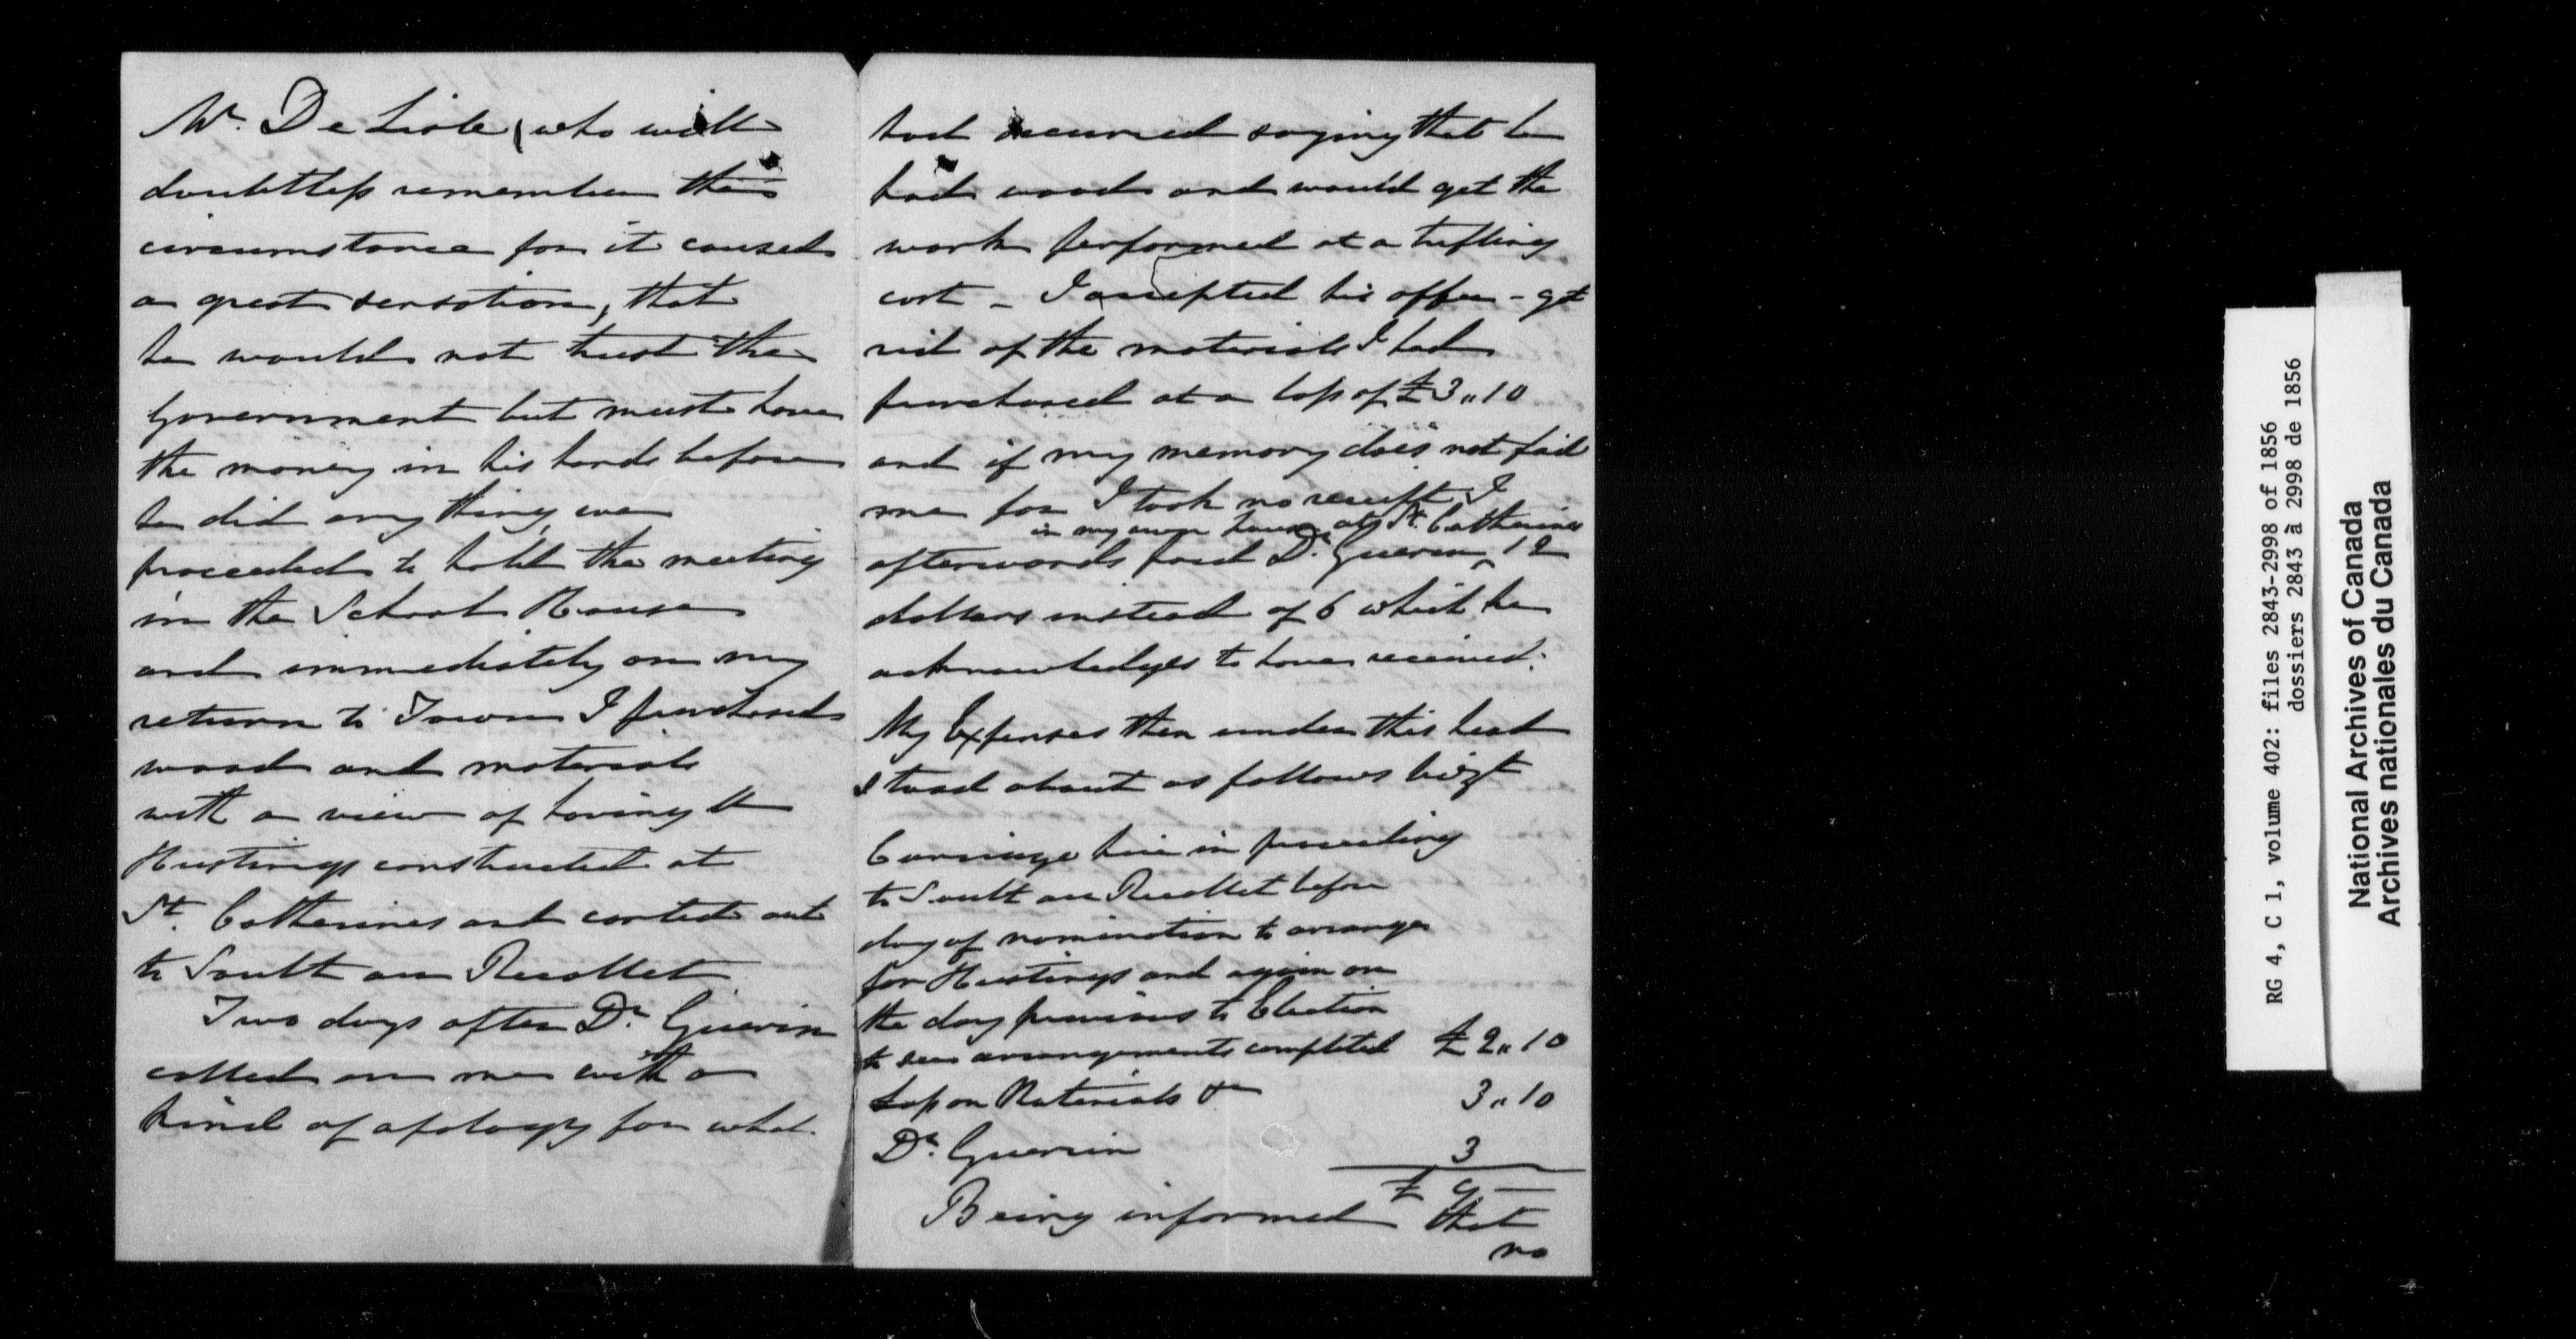 Mr. De Lisle (who will
doubtless remember the
circumstance for it caused
a great sensation, that
he would not trust the
Government but must have
the money in his hands before
he did any thing, we
proceeded to hold the meeting
in the School House
and immediately on my
return to Town I purchased
wood and materials
with a view of having the
Hustings constructed at
St. Catherines and carted out
to Sault au Recollet
Two days after Dr. Guerin
called on me with a
kind of apology for what
had occurred saying that he
had wood and would get the
work performed at a trifling
cost - I accepted his offer - got
rid of the materials I had
purchased at a loss of £3,,10
and if my memory does not fail
me for I took no receipt, I
in my own house at St. Catherines
afterwards paid Dr. Guerin ^ 12
dollars instead of 6 which he
acknowledges to have received.
My Expenses then under this head
stood about as follows vizt
Carriage hire in proceeding
to Sault au Recollet before
day of nomination to arrange
for Hustings and again on
the day previous to Election
to see arrangements completed £2,,10
Loss on Materials &c 3,,10
Dr. Guerin 3
£ 9 —
Being informed that
no
RG 4, C 1, volume 402: files 2843-2998 of 1856
dossiers 2843 à 2998 de 1856
National Archives of Canada
Archives nationales du Canada